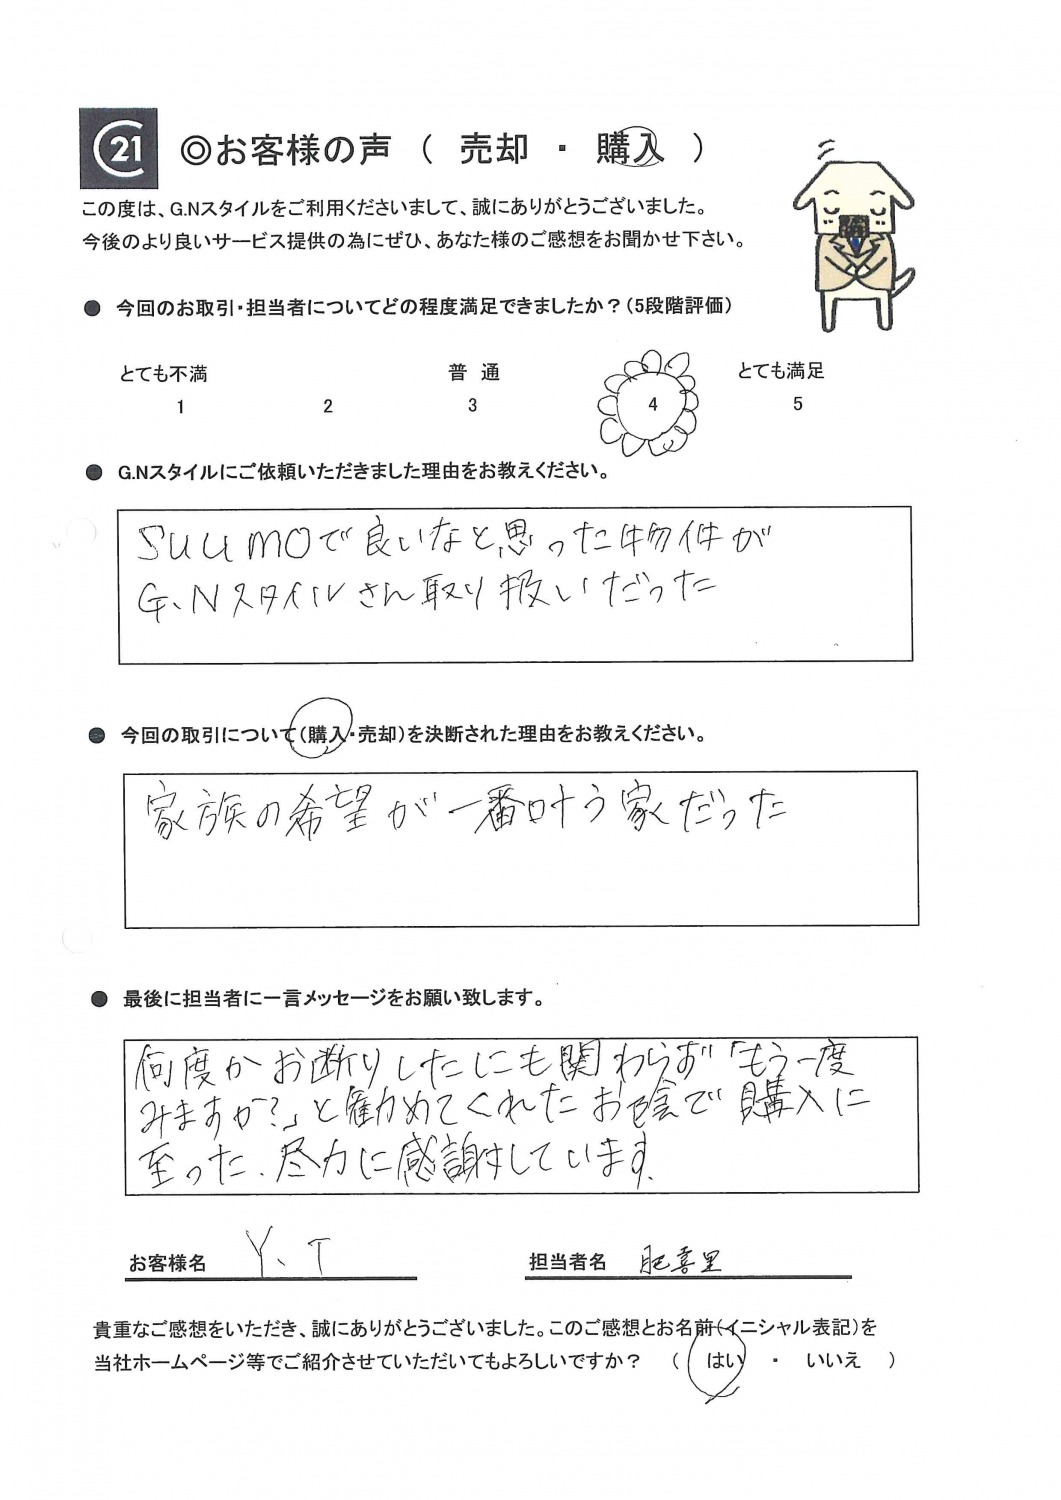 C21
◎お客様の声 ( 売却 ・ 購入 )
この度は、G.Nスタイルをご利用くださいまして、誠にありがとうございました。
今後のより良いサービス提供の為にぜひ、あなた様のご感想をお聞かせ下さい。
● 今回のお取引・担当者についてどの程度満足できましたか?(5段階評価)
とても不満 普 通 とても満足
1 2 3 4 5
● G.Nスタイルにご依頼いただきました理由をお教えください。
SUUMOで良いなと思った物件が
G.Nスタイルさん取り扱いだった
● 今回の取引について(購入・売却)を決断された理由をお教えください。
家族の希望が一番叶う家だった
● 最後に担当者に一言メッセージをお願い致します。
何度かお断りしたにも関わらず「もう一度
みますか?」と勧めてくれたお陰で購入に
至った.尽力に感謝しています.
お客様名 Y.T 担当者名 肥喜里
貴重なご感想をいただき、誠にありがとうございました。このご感想とお名前(イニシャル表記)を
当社ホームページ等でご紹介させていただいてもよろしいですか? ( はい ・ いいえ )